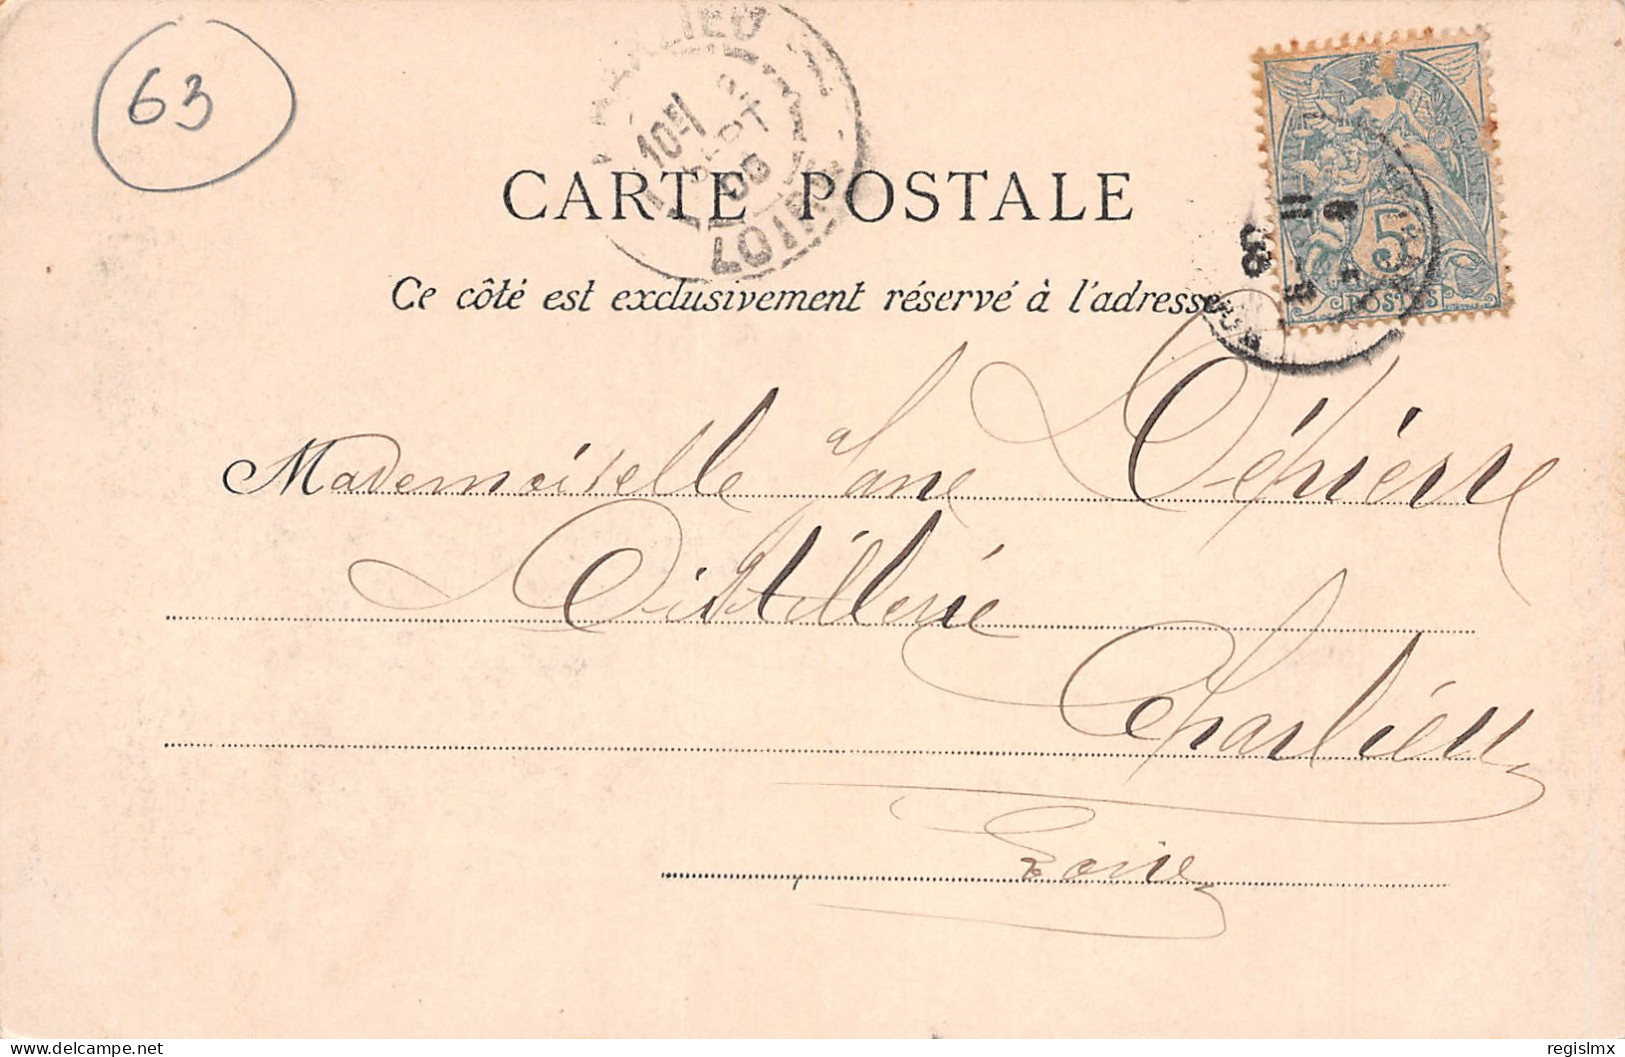 63
CHARLIEU
10
SEPT
LOIRE
CARTE POSTALE
Ce côté est exclusivement réservé à l'adresse
FRANÇAISE
5c
POSTES
Mademoiselle Jane Dépierre
Distillerie
Charlieu
Loire
delcampe.net
regislmx